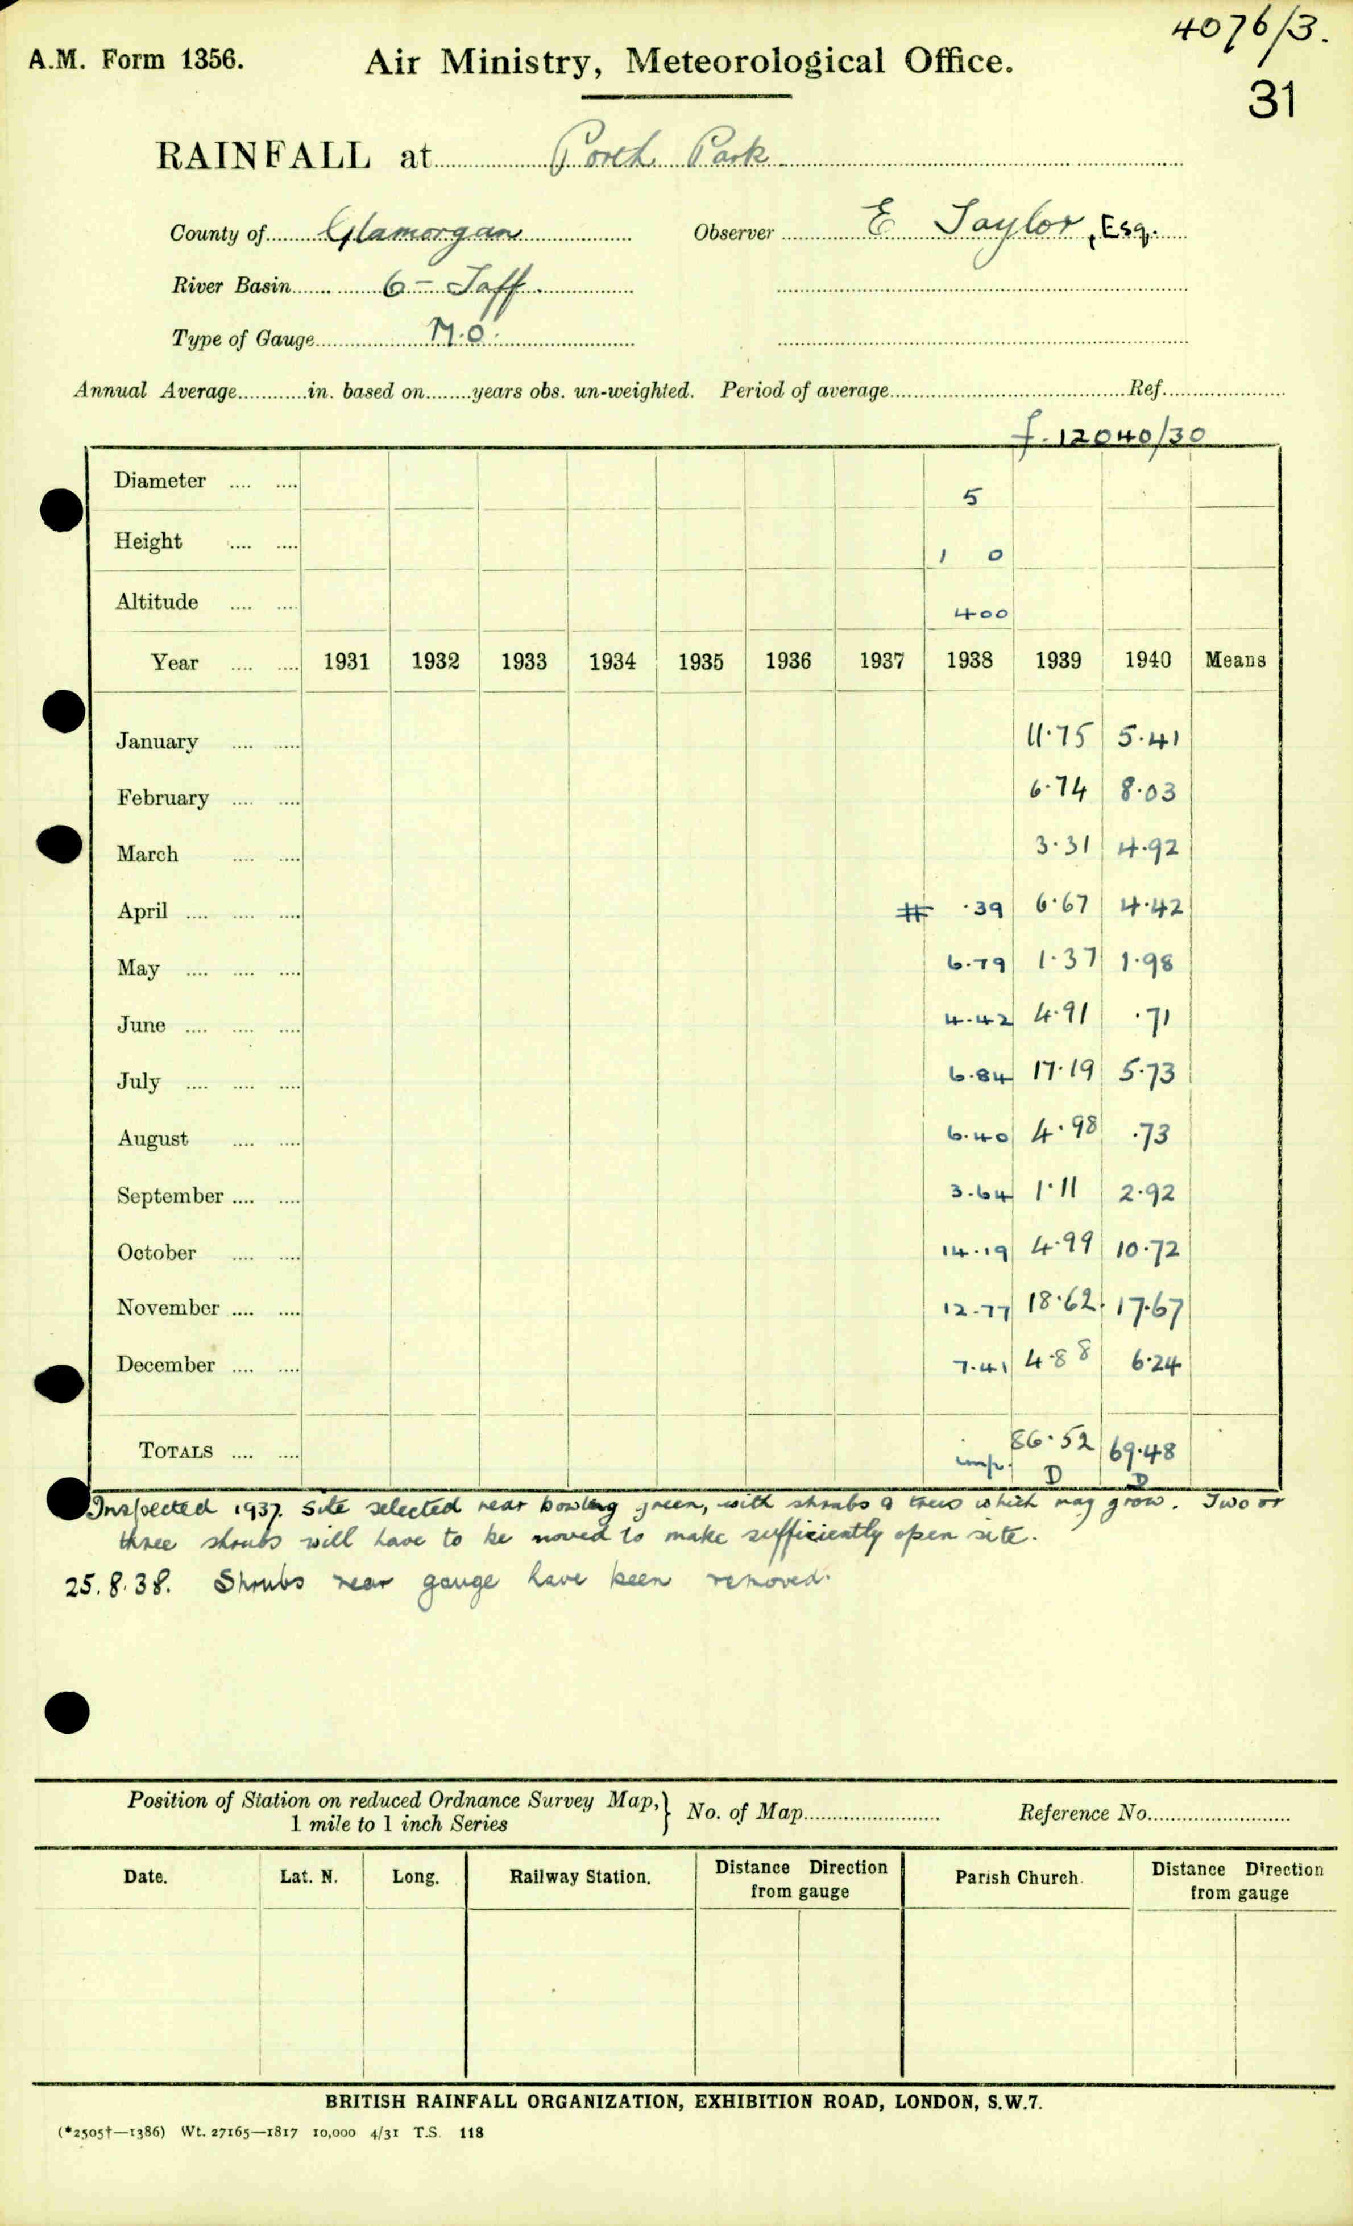 4076/3.
A.M. Form 1356. Air Ministry, Meteorological Office.
31
RAINFALL at Porth Park
County of Glamorgan Observer E Taylor, Esq.
River Basin 6 - Taff.
Type of Gauge M.O.
Annual Average in. based on years obs. un-weighted. Period of average Ref.
f. 12040/30
Diameter 5
Height 1 0
Altitude 400
Year 1931 1932 1933 1934 1935 1936 1937 1938 1939 1940 Means
January 11.75 5.41
February 6.74 8.03
March 3.31 4.92
April # .39 6.67 4.42
May 6.79 1.37 1.98
June 4.42 4.91 .71
July 6.84 17.19 5.73
August 6.40 4.98 .73
September 3.64 1.11 2.92
October 14.19 4.99 10.72
November 12.77 18.62 17.67
December 7.41 4.88 6.24
TOTALS imp. 86.52 69.48
D D
Inspected 1937. Site selected near bowling green, with shrubs & trees which may grow. Two or
three shrubs will have to be moved to make sufficiently open site.
25.8.38. Shrubs near gauge have been removed.
Position of Station on reduced Ordnance Survey Map, } No. of Map Reference No.
1 mile to 1 inch Series
Date. Lat. N. Long. Railway Station. Distance Direction Parish Church. Distance Direction
from gauge from gauge
BRITISH RAINFALL ORGANIZATION, EXHIBITION ROAD, LONDON, S.W.7.
(*2505†—1386) Wt. 27165—1817 10,000 4/31 T.S. 118